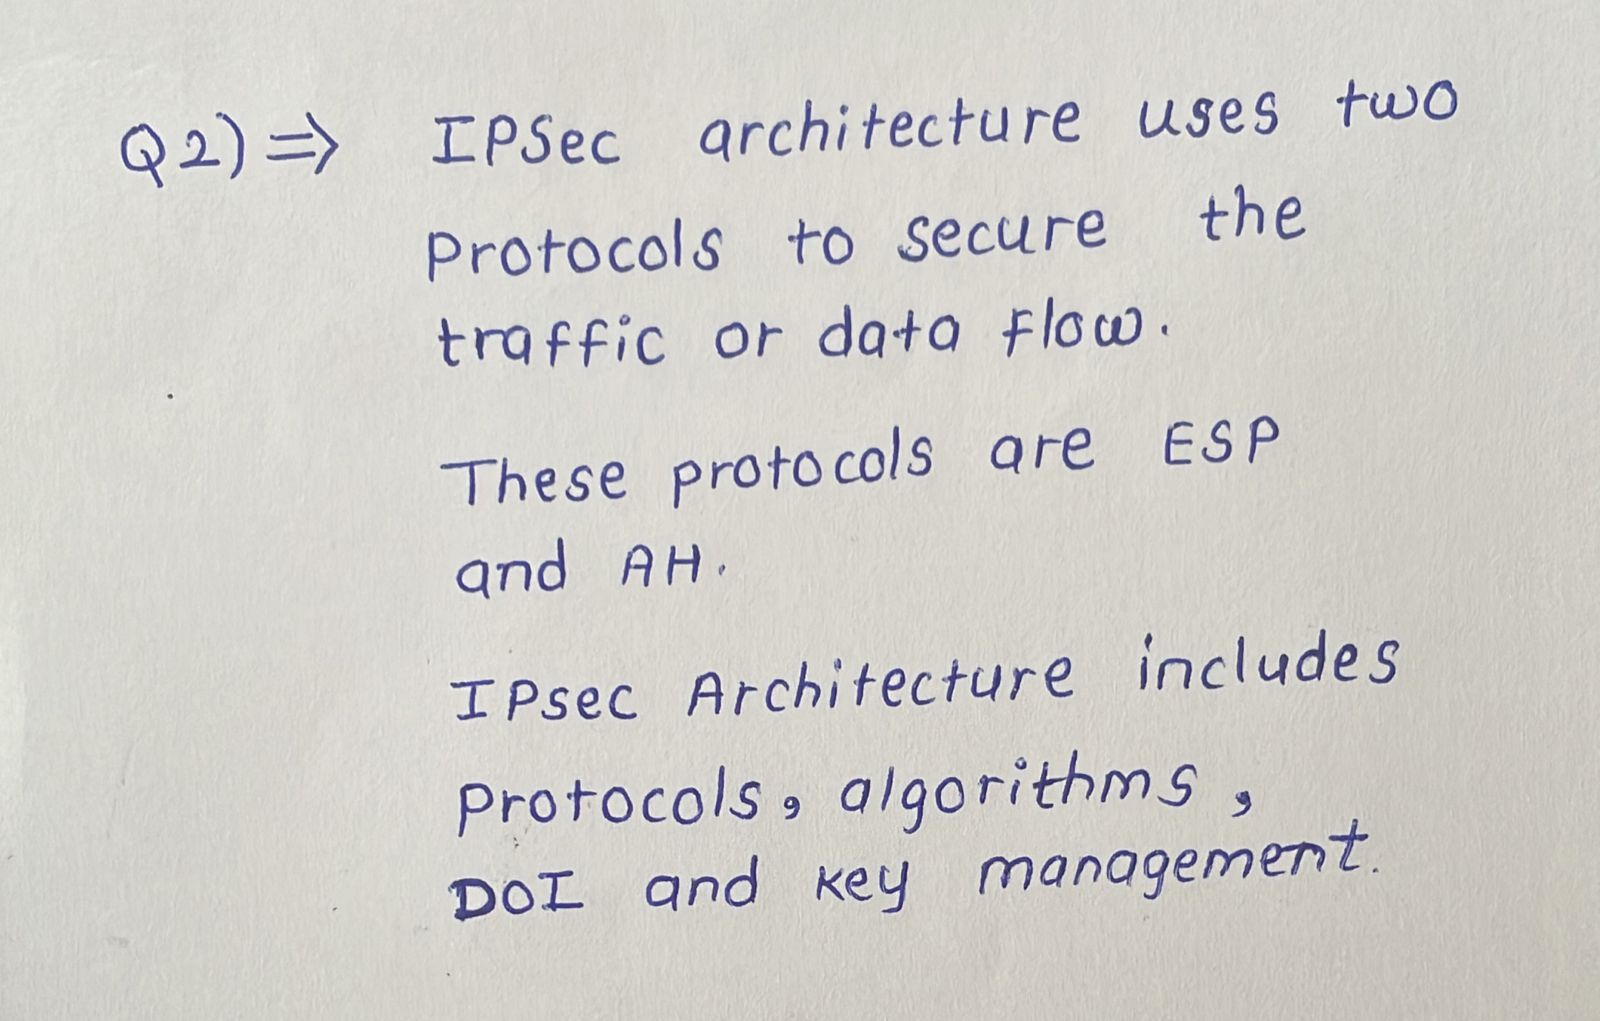 Q2) ⇒ IPSec architecture uses two
Protocols to secure the
traffic or data flow.
These protocols are ESP
and AH.
IPsec Architecture includes
Protocols, algorithms,
DOI and key management.